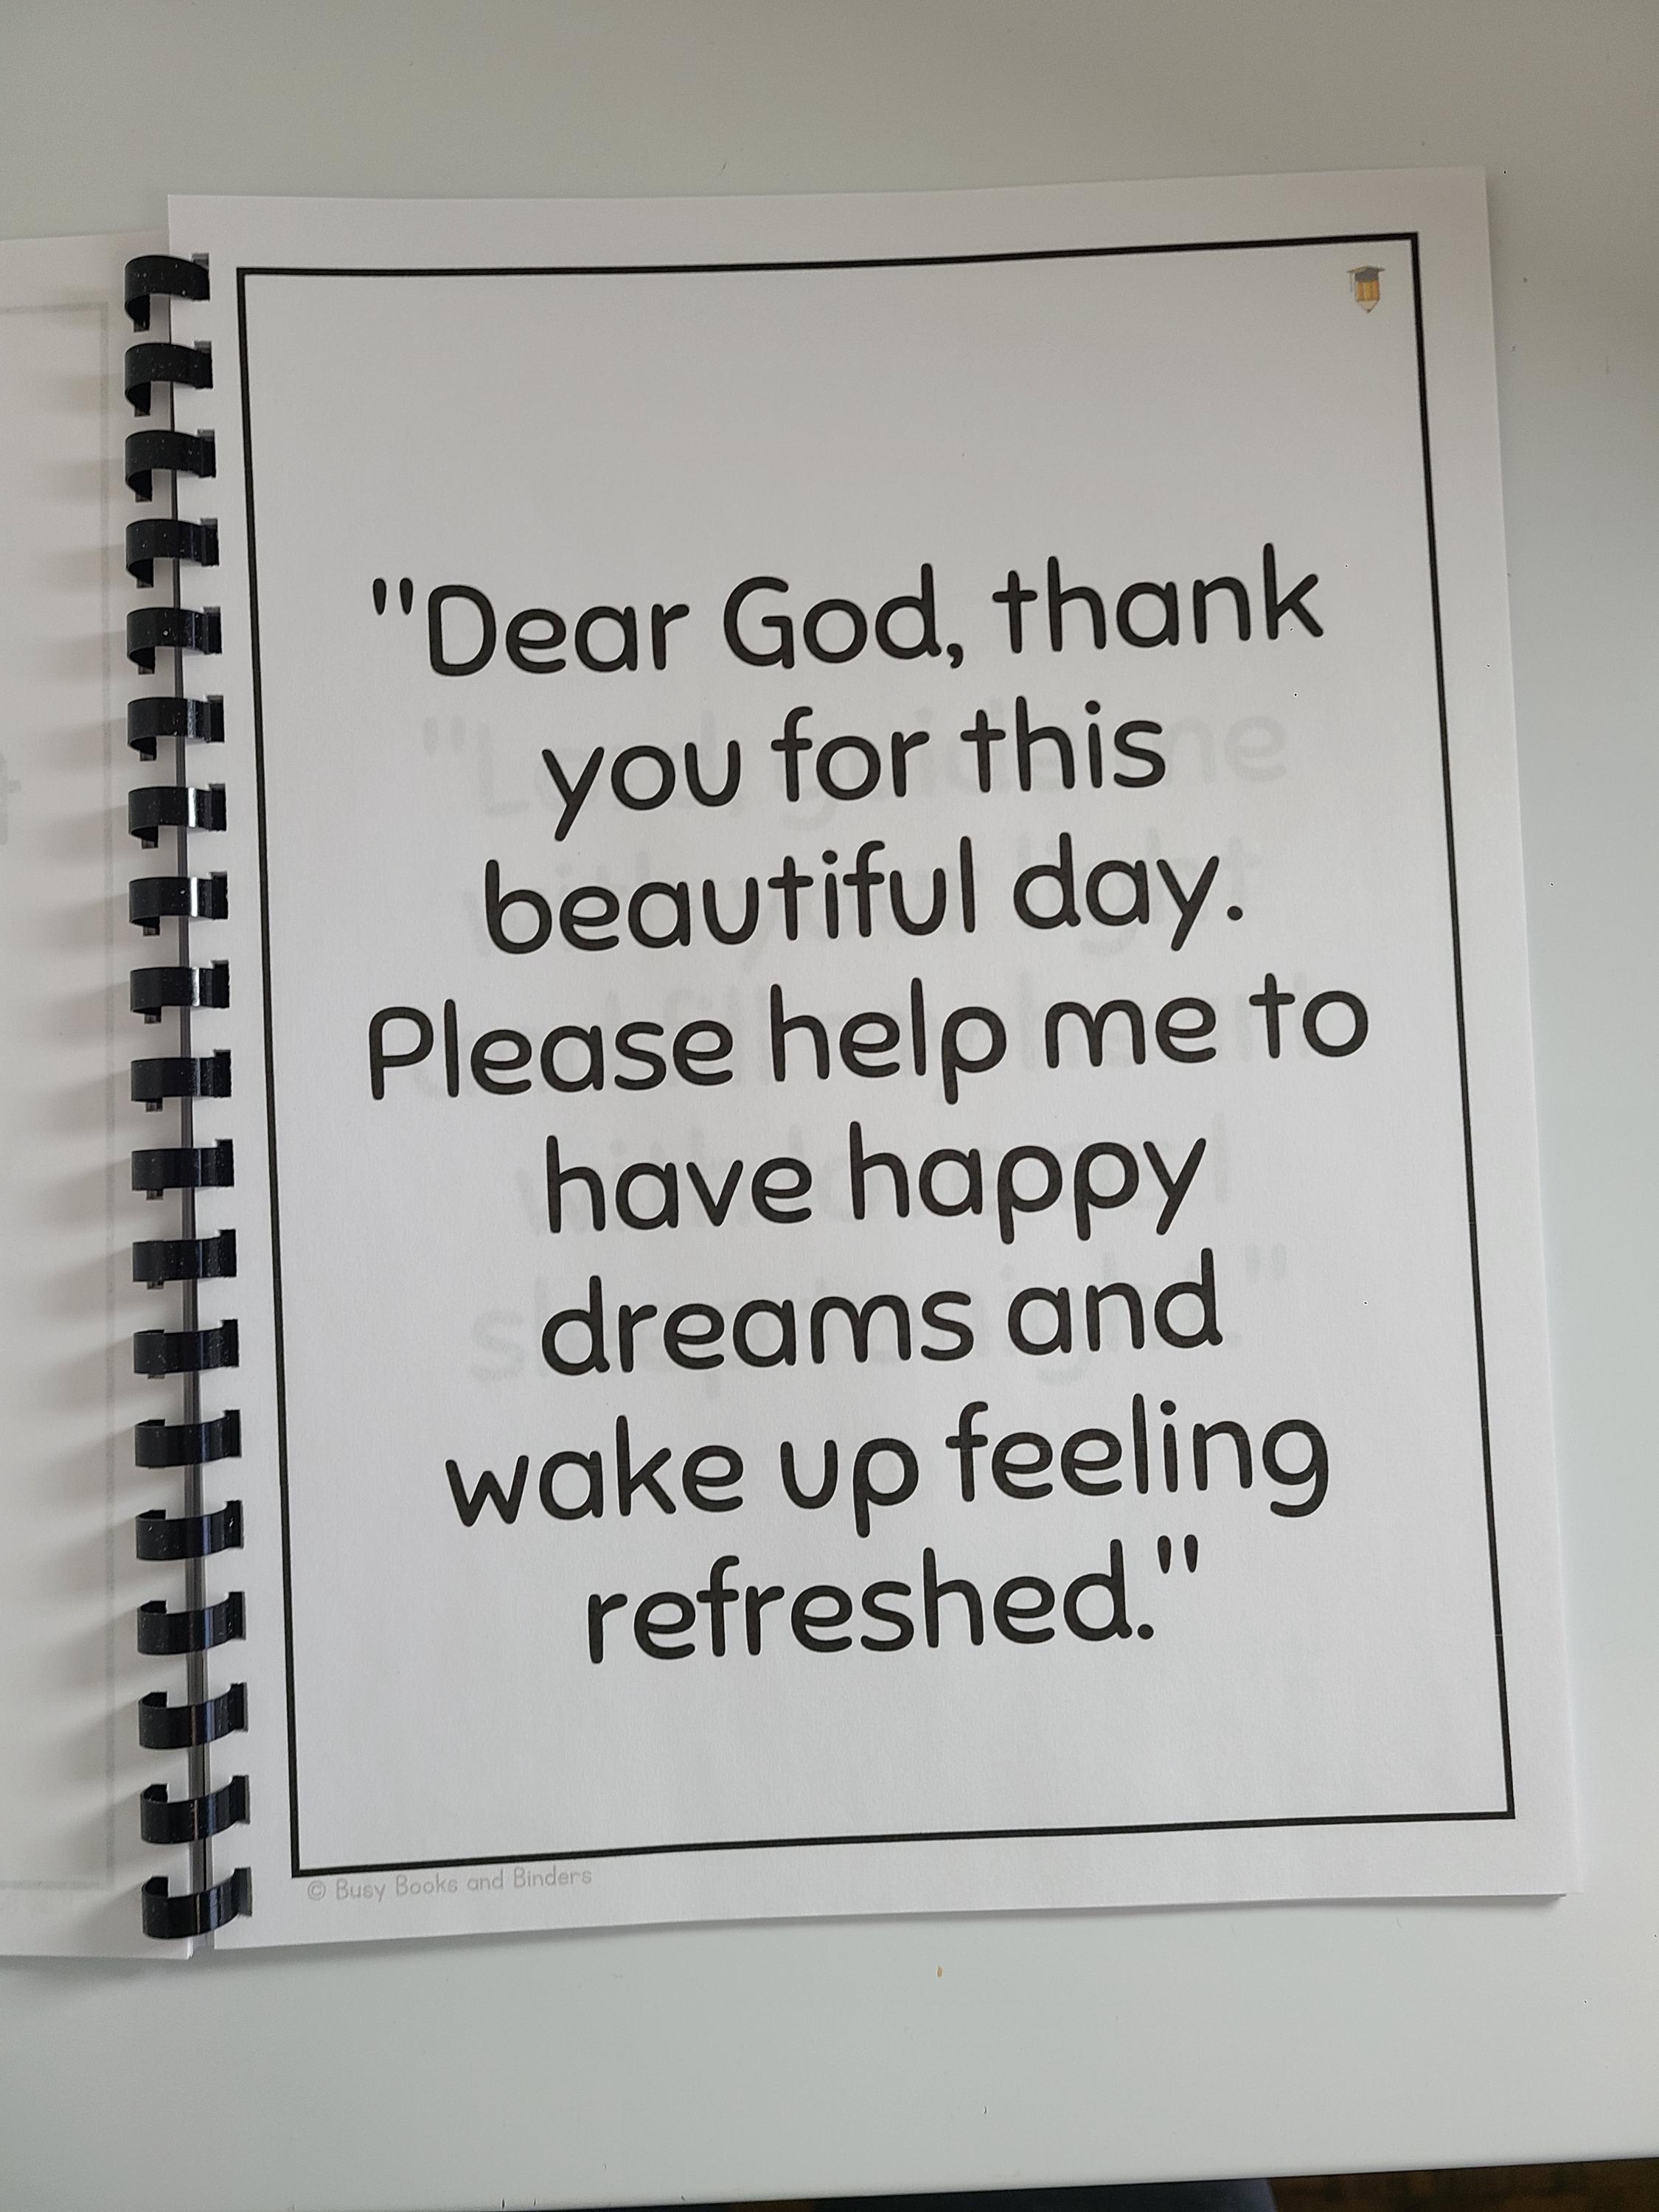 "Dear God, thank
you for this
beautiful day.
Please help me to
have happy
dreams and
wake up feeling
refreshed."
© Busy Books and Binders